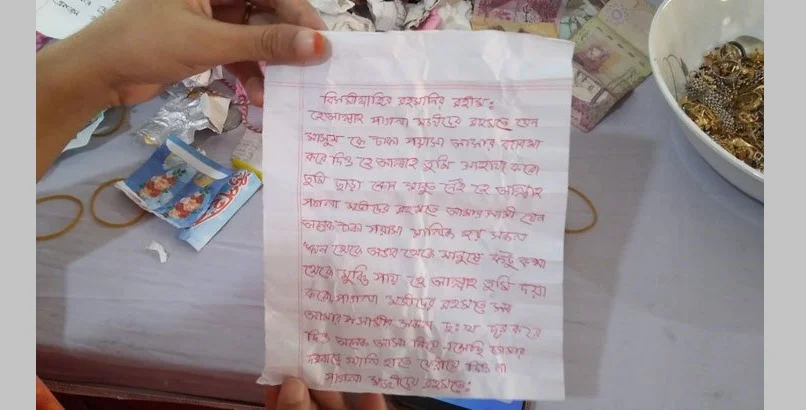 বিসমিল্লাহির রহমানির রহীম:
হে আল্লাহ পাগলা মসজীদের রহমতে যেন
মাসুম কে টাকা পয়সা আসার ব্যবস্থা
করে দিও হে আল্লাহ তুমি সাহায্য করো
তুমি ছাড়া কোন মাবুত নেই হে আল্লাহ
পাগলা মসজীদের রহমতে আমার স্বামী যেন
অনেক টাকা পয়সা মালিক হয় সকল
থেকে অভাব থেকে মানুষে কটু কথা
থেকে মুক্তি পায় হে আল্লাহ তুমি দয়া
করো পাগলা মসজীদের রহমতে
আমার সকল দুঃখ দূর করে
দিও অনেক আশা নিয়ে এসেছি তোমার
দরবারে খালি হাতে ফেরায়ে দিও না
পাগলা মসজীদের রহমতে: